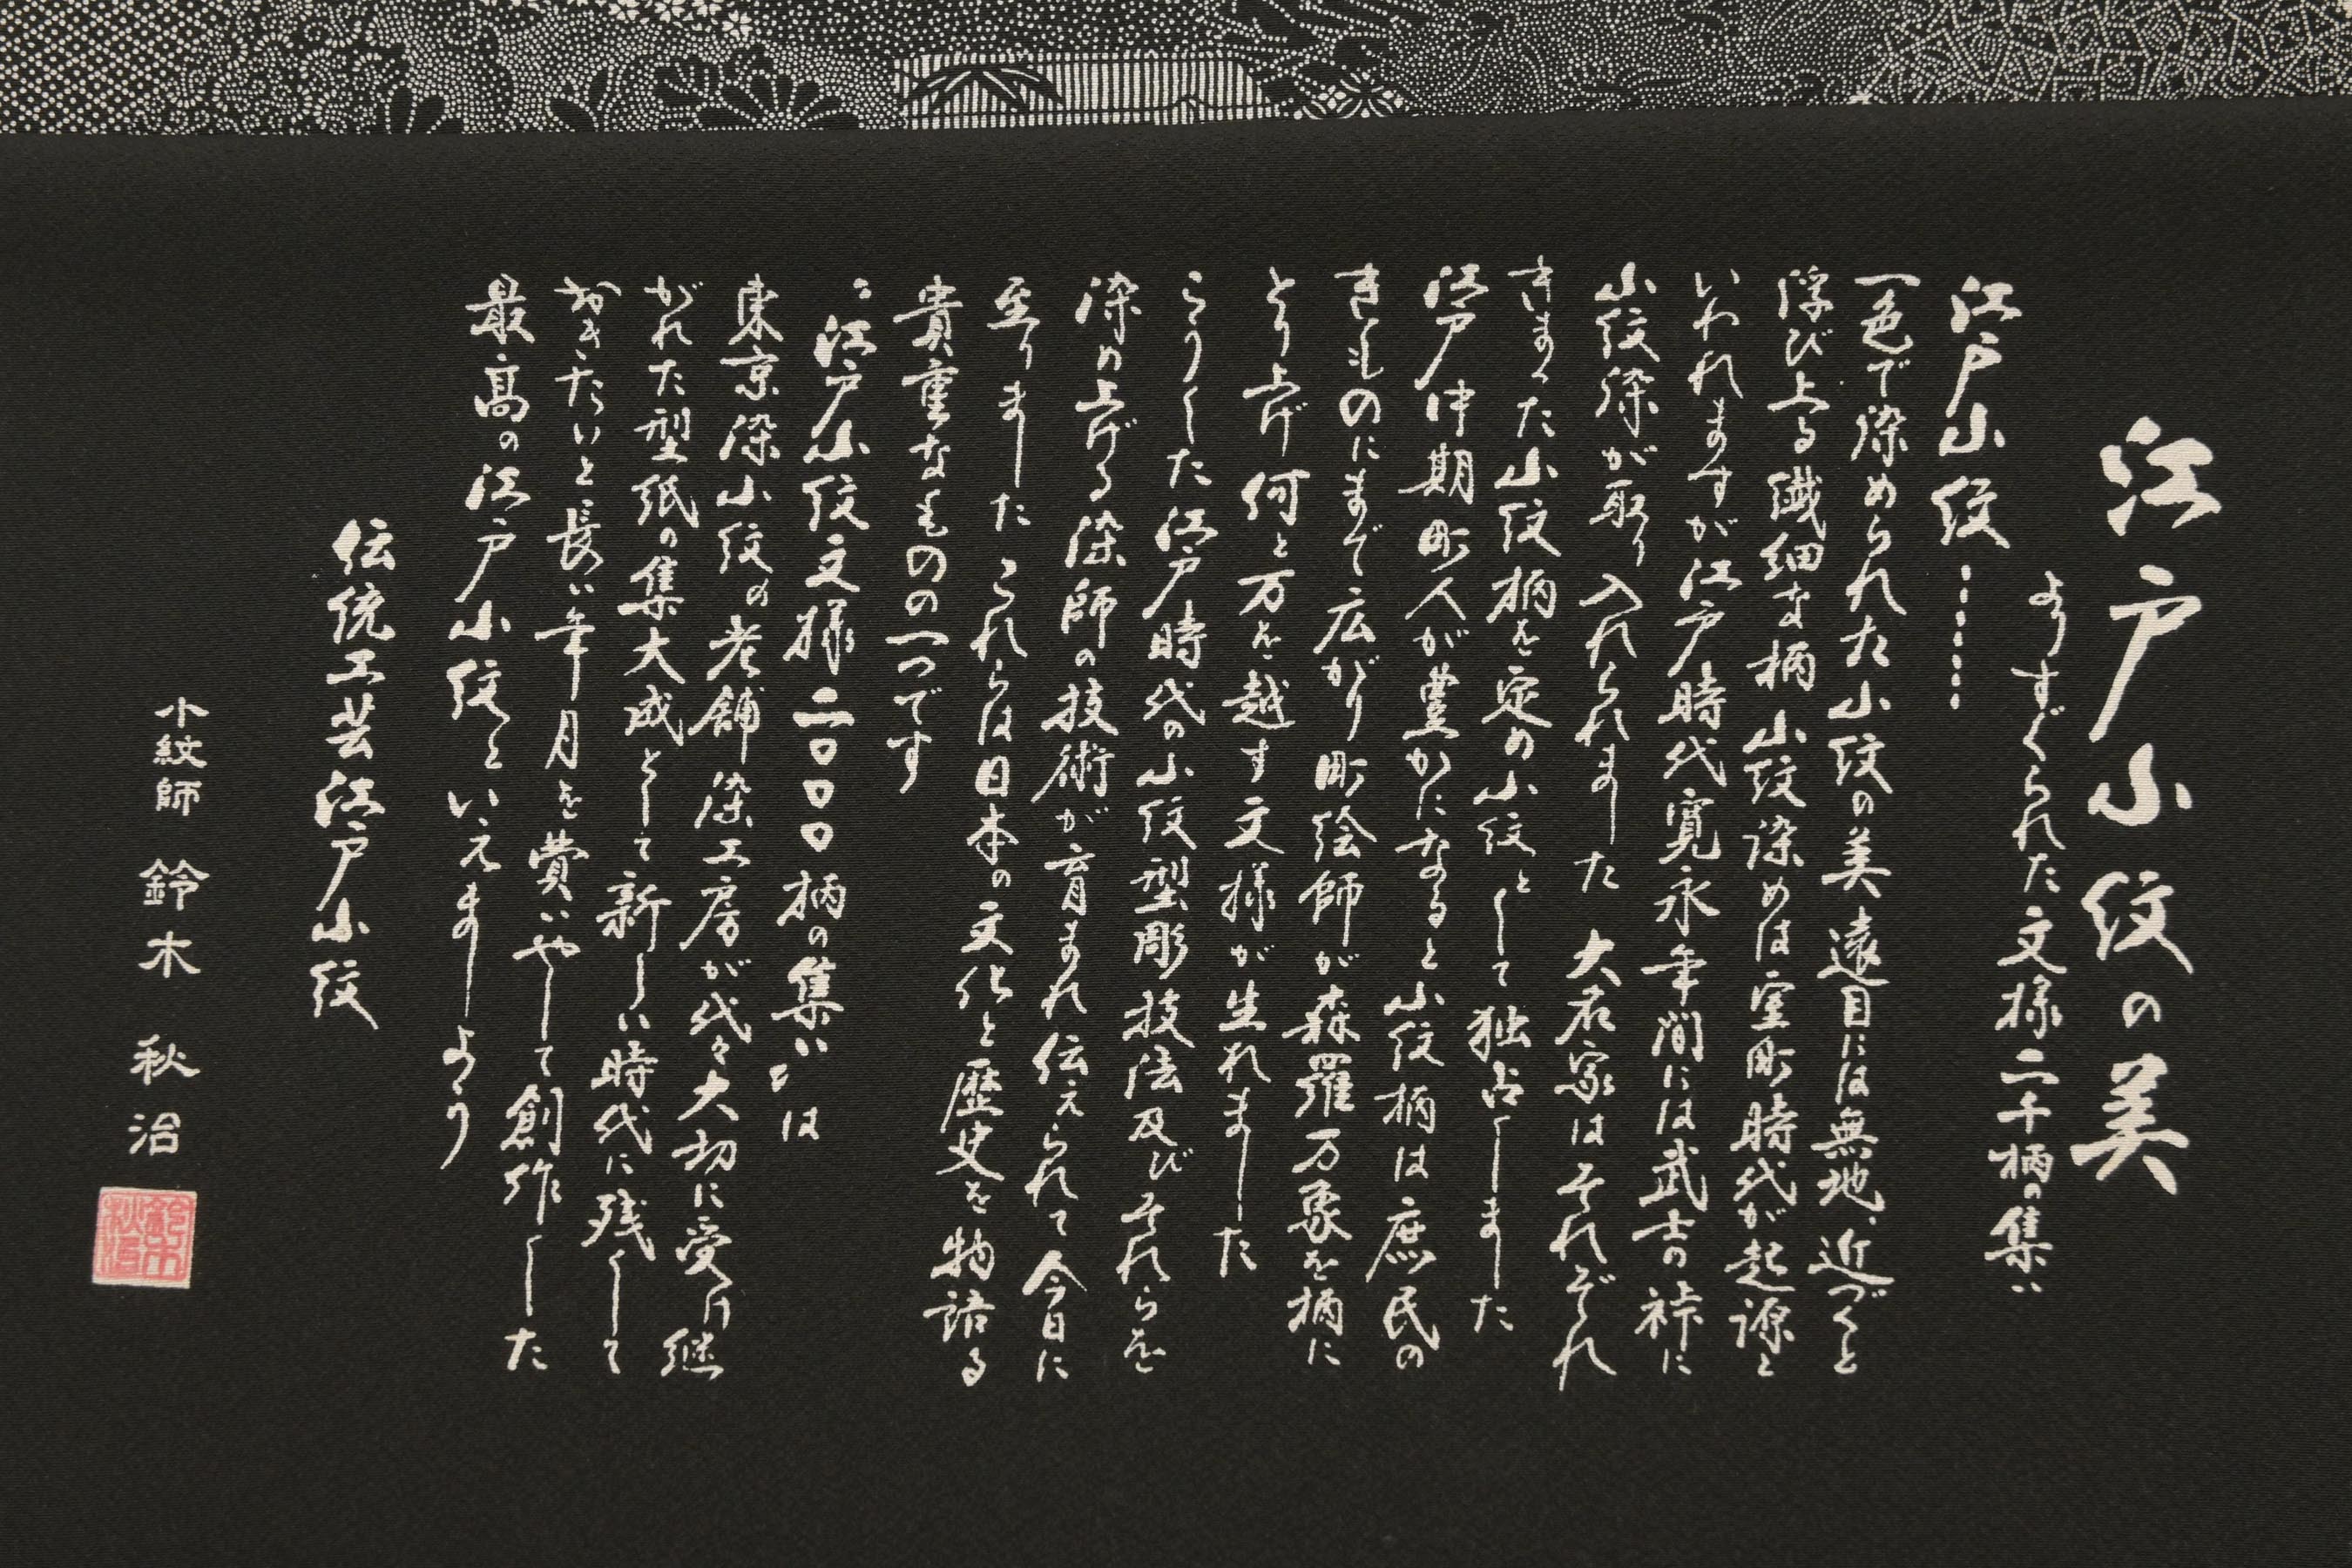 江戸小紋の美
よりすぐられた文様二千柄の集い
江戸小紋……
一色で染められた小紋の美遠目には無地、近づくと
浮び上る繊細な柄 小紋染めは室町時代が起源と
いわれますが江戸時代寛永年間には武士の裃に
小紋染が取り入れられました 大名家はそれぞれ
きまった小紋柄を定め小紋として独占しました
江戸中期町人が豊かになると小紋柄は庶民の
きものにまで広がり町絵師が森羅万象を柄に
とり上げ何と万を越す文様が生れました
こうした江戸時代の小紋型彫技法及びそれらを
染め上げる染師の技術が育まれ伝えられて今日に
至りました これらは日本の文化と歴史を物語る
貴重なものの一つです
〝江戸小紋文様二〇〇〇柄の集い〟は
東京染小紋の老舗染工房が代々大切に受け継
がれた型紙の集大成として新しい時代に残して
おきたいと長い年月を費いやして創作した
最高の江戸小紋といえましょう
伝統工芸江戸小紋
小紋師 鈴木 秋治
鈴木
秋治